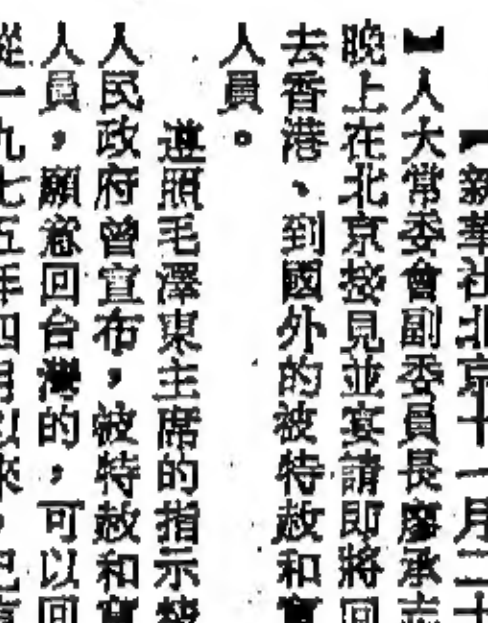 【新華社北京十一月二十
】人大常委會副委員長廖承志
晚上在北京接見並宴請即將回
去香港、到國外的被特赦和寬
人員。
遵照毛澤東主席的指示
人民政府曾宣布，被特赦和寬
人員，願意回台灣的，可以回
從一九七五年四月以來，已